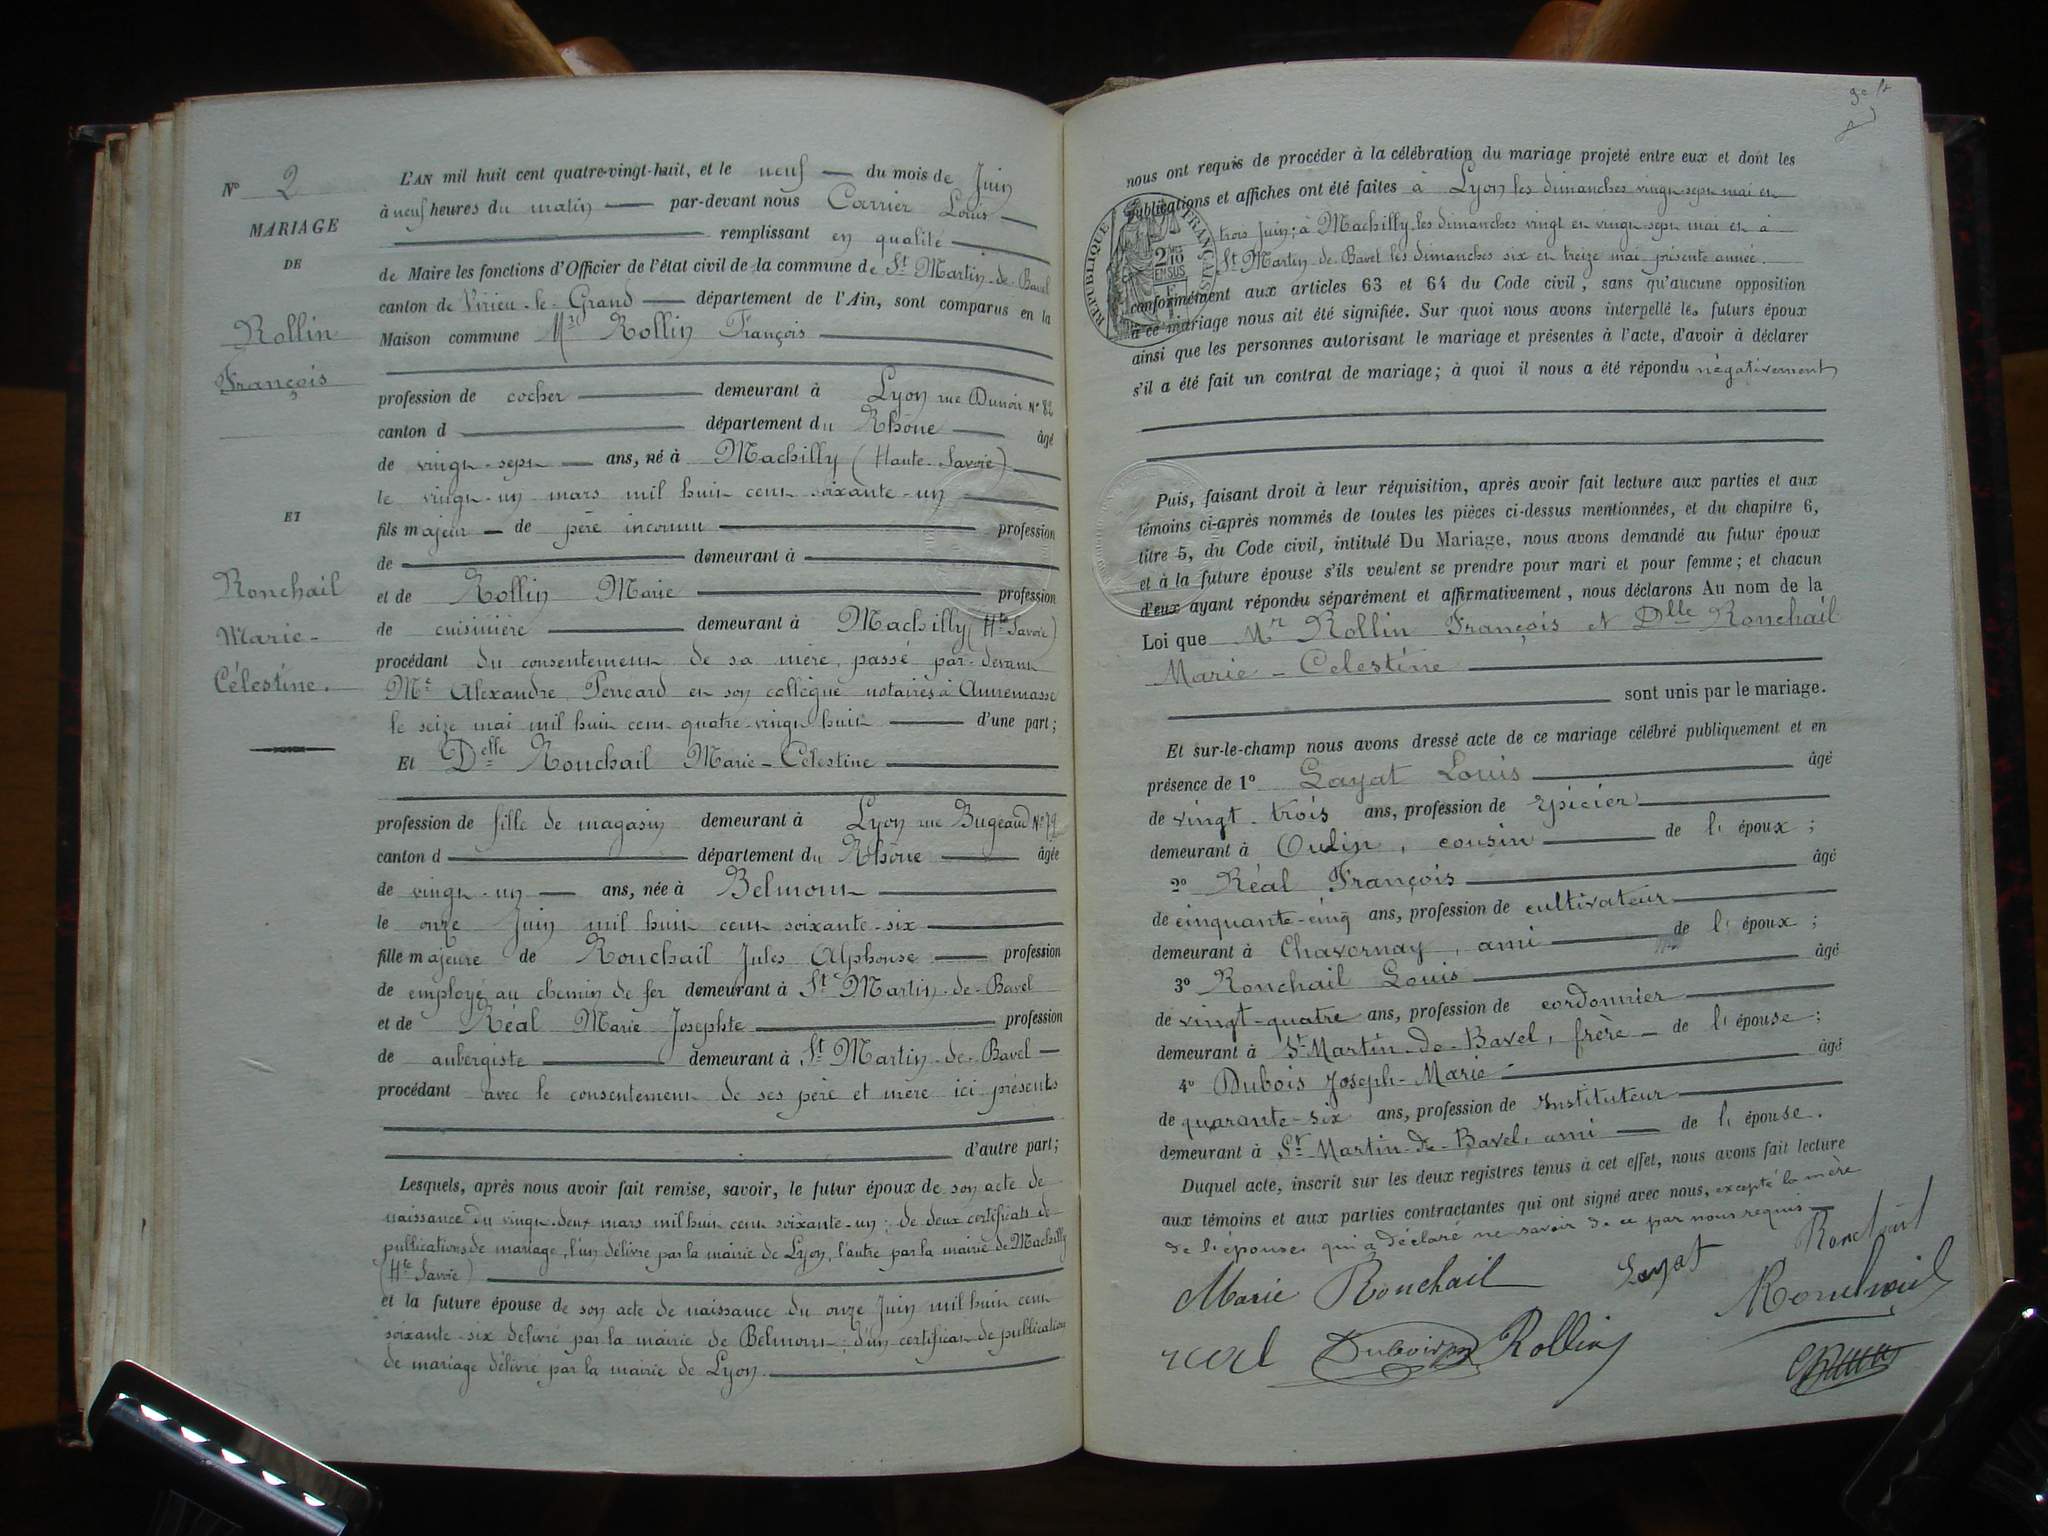 N° 2
MARIAGE
DE
Rollin
François
ET
Ronchail
Marie-
Célestine.
L'AN mil huit cent quatre-vingt-huit, et le neuf du mois de Juin
à neuf heures du matin par-devant nous Carrier Louis
remplissant en qualité
de Maire les fonctions d'Officier de l'état civil de la commune de St Martin-de-Bavel
canton de Virieu-le-Grand département de l'Ain, sont comparus en la
Maison commune Mr Rollin François
profession de cocher demeurant à Lyon rue Dunoir N° 82
canton d département du Rhône âgé
de vingt-sept ans, né à Machilly (Haute-Savoie)
le vingt-un mars mil huit cent soixante-un
fils majeur de père inconnu profession
de demeurant à
et de Rollin Marie profession
de cuisinière demeurant à Machilly (Hte Savoie)
procédant du consentement de sa mère, passé par-devant
Me Alexandre Perréard et son collègue notaires à Annemasse
le seize mai mil huit cent quatre-vingt huit d'une part;
Et Delle Ronchail Marie-Célestine
profession de fille de magasin demeurant à Lyon rue Bugeaud N° 79
canton d département du Rhône âgée
de vingt-un ans, née à Belmont
le onze Juin mil huit cent soixante-six
fille majeure de Ronchail Jules Alphonse profession
de employé au chemin de fer demeurant à St Martin-de-Bavel
et de Réal Marie Josephte profession
de aubergiste demeurant à St Martin-de-Bavel
procédant avec le consentement de ses père et mère ici présents
d'autre part;
Lesquels, après nous avoir fait remise, savoir, le futur époux de son acte de
naissance du vingt-deux mars mil huit cent soixante-un; de deux certificats de
publications de mariage, l'un délivré par la mairie de Lyon, l'autre par la mairie de Machilly
(Hte Savoie)
et la future épouse de son acte de naissance du onze Juin mil huit cent
soixante-six délivré par la mairie de Belmont; d'un certificat de publication
de mariage délivré par la mairie de Lyon.
nous ont requis de procéder à la célébration du mariage projeté entre eux et dont les
publications et affiches ont été faites à Lyon les dimanches vingt-sept mai et
trois Juin; à Machilly les dimanches vingt et vingt-sept mai et à
St Martin-de-Bavel les dimanches six et treize mai présente année.
conformément aux articles 63 et 64 du Code civil, sans qu'aucune opposition
à ce mariage nous ait été signifiée. Sur quoi nous avons interpellé les futurs époux
ainsi que les personnes autorisant le mariage et présentes à l'acte, d'avoir à déclarer
s'il a été fait un contrat de mariage; à quoi il nous a été répondu négativement
RÉPUBLIQUE FRANÇAISE
2/10
EN SUS
Puis, faisant droit à leur réquisition, après avoir fait lecture aux parties et aux
témoins ci-après nommés de toutes les pièces ci-dessus mentionnées, et du chapitre 6,
titre 5, du Code civil, intitulé Du Mariage, nous avons demandé au futur époux
et à la future épouse s'ils veulent se prendre pour mari et pour femme; et chacun
d'eux ayant répondu séparément et affirmativement, nous déclarons Au nom de la
Loi que Mr Rollin François et Dlle Ronchail
Marie-Celestine
sont unis par le mariage.
Et sur-le-champ nous avons dressé acte de ce mariage célébré publiquement et en
présence de 1° Gayat Louis âgé
de vingt-trois ans, profession de épicier
demeurant à Oulin, cousin de l' époux;
2° Réal François âgé
de cinquante-cinq ans, profession de cultivateur
demeurant à Chavornay, ami de l' époux;
3° Ronchail Louis âgé
de vingt-quatre ans, profession de cordonnier
demeurant à St Martin-de-Bavel, frère de l' épouse;
4° Dubois Joseph-Marie âgé
de quarante-six ans, profession de Instituteur
demeurant à St Martin-de-Bavel, ami de l' épouse.
Duquel acte, inscrit sur les deux registres tenus à cet effet, nous avons fait lecture
aux témoins et aux parties contractantes qui ont signé avec nous, excepté la mère
de l'épouse, qui a déclaré ne savoir de ce par nous requis
Ronchail
Marie Ronchail Gayat Ronchail
real Dubois Rollin